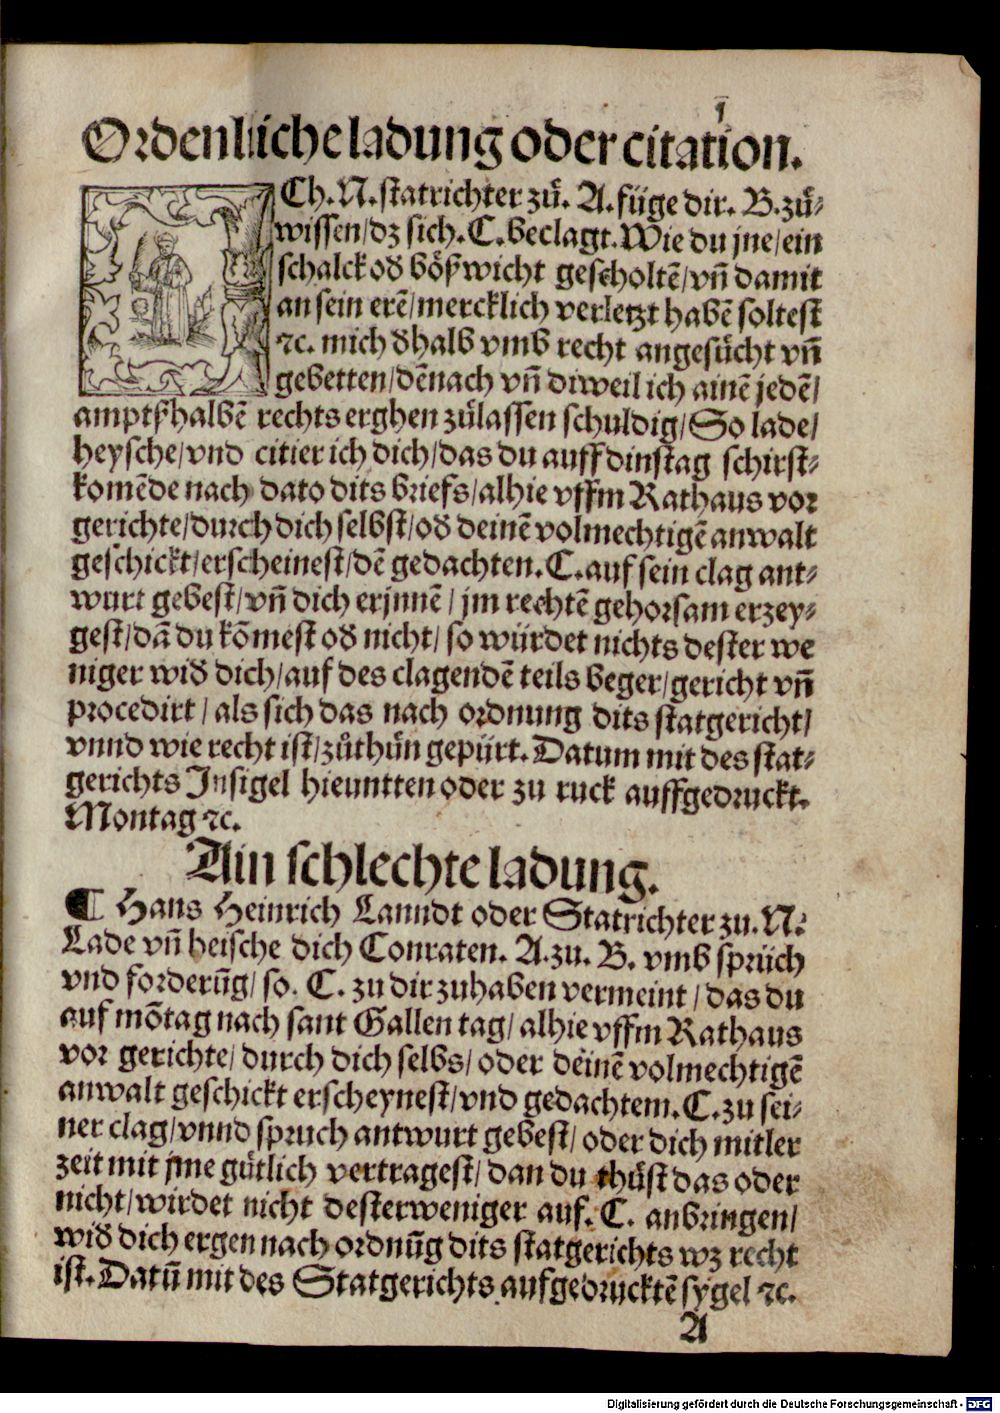 1
Ordenlliche ladung oder citation.
ICh. N. statrichter zů. A. füge dir. B. zů⸗
wissen/dz sich. C. beclagt. Wie du jne/ein
schalck od̕ bößwicht gescholtē/vn̄ damit
an sein erē/mercklich verletzt habē soltest
⁊c. mich d̕halb vmb recht angesůcht vn̄
gebetten/dēnach vn̄ diweil ich ainē jedē/
amptßhalbē rechts erghen zůlassen schuldig/So lade/
heysche/vnd citier ich dich/das du auff dinstag schirst⸗
komēde nach dato dits briefs/alhie vffm Rathaus vor
gerichte/durch dich selbst/od̕ deinē volmechtigē anwalt
geschickt/erscheinest/dē gedachten. C. auf sein clag ant⸗
wurt gebest/vn̄ dich erjnnē/jm rechtē gehorsam erzey⸗
gest/dā du kōmest od̕ nicht/so würdet nichts dester we
niger wid̕ dich/auf des clagendē teils beger/gericht vn̄
procedirt/als sich das nach ordnung dits statgericht/
vnnd wie recht ist/zůthůn gepürt. Datum mit des stat⸗
gerichts Insigel hieuntten oder zu ruck auffgedruckt.
Montag ⁊c.
Ain schlechte ladung.
¶ Hans Heinrich Lanndt oder Statrichter zu. N.
Lade vn̄ heische dich Conraten. A. zu. B. vmb sprüch
vnd forderūg/so. C. zu dir zuhaben vermeint/das du
auf mōtag nach sant Gallen tag/alhie vffm Rathaus
vor gerichte/durch dich selbs/oder deinē volmechtigē
anwalt geschickt erscheynest/vnd gedachtem. C. zu sei⸗
ner clag/vnnd spruch antwurt gebest/oder dich mitler
zeit mit jme gütlich vertragest/dan du thůst das oder
nicht/wirdet nicht desterweniger auf. C. anbringen/
wid̕ dich ergen nach ordnūg dits statgerichts wz recht
ist. Datū mit des Statgerichts aufgedrucktē sygel ⁊c.
A
Digitalisierung gefördert durch die Deutsche Forschungsgemeinschaft - DFG